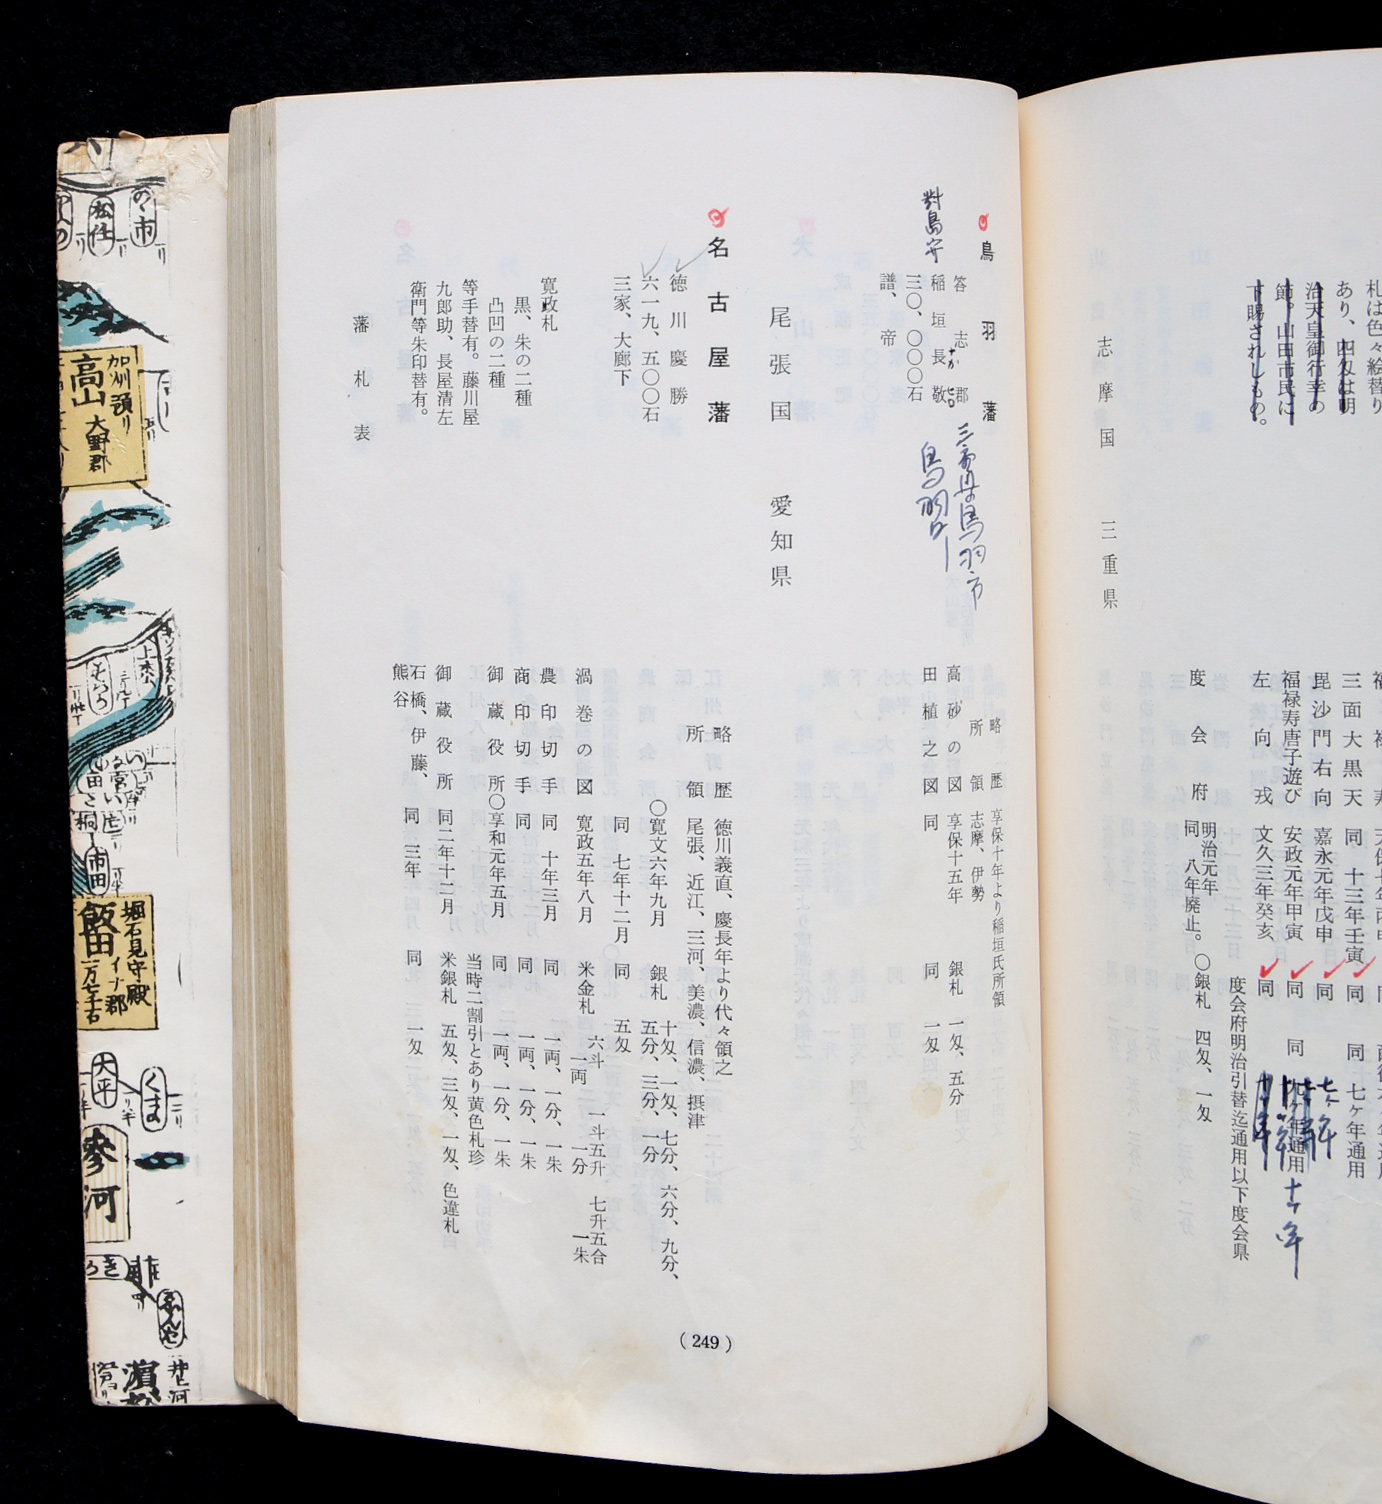 札は色々絵替り
あり、四匁は明
治天皇御行幸の
節。山田市民に
下賜されしもの。
三面大黒天 同 十三年壬寅 同 同 七ケ年通用
毘沙門右向 嘉永元年戊申 同 七ヶ年
福禄寿唐子遊び 安政元年甲寅 同 同 九ケ年通用 十一年
左向戎 文久三年癸亥 同
度会府明治引替迄通用以下度会県
度会府 明治元年
同 八年廃止。〇銀札 四匁、一匁
志摩国 三重県
鳥羽藩
略歴 享保十年より稲垣氏所領
所領 志摩、伊勢
答志郡
三重県鳥羽市
稲垣長敬
ながひろ
對島守
鳥羽町
三〇、〇〇〇石
譜、帝
高砂の図 享保十五年 銀札 一匁、五分
田植之図 同 同 一匁
尾張国 愛知県
名古屋藩
徳川慶勝
六一九、五〇〇石
三家、大廊下
略歴 徳川義直、慶長年より代々領之
所領 尾張、近江、三河、美濃、信濃、摂津
〇寛文六年九月 銀札 十匁、一匁、七分、六分、九分、
五分、三分、一分
同 七年十二月 同 五匁
寛政札
黒、朱の二種
凸凹の二種
等手替有。藤川屋
九郎助、長屋清左
衛門等朱印替有。
渦巻の図 寛政五年八月 米金札 六斗 一斗五升 七升五合
一両 一分 一朱
農印切手 同 十年三月 同 一両、一分、一朱
商印切手 同 同 一両、一分、一朱
御蔵役所〇享和元年五月 同 一両、一分、一朱
当時二割引とあり黄色札珍
御蔵役所 同二年十二月 米銀札 五匁、三匁、一匁、色違札
石橋、伊藤、 同 三年 同 一匁
熊谷
藩札表
(249)
の市
松任
加州領り
高山 大野郡
堀石見守殿
飯田 イナ郡
一万七千石
市田
大平
くま
参河
濵松